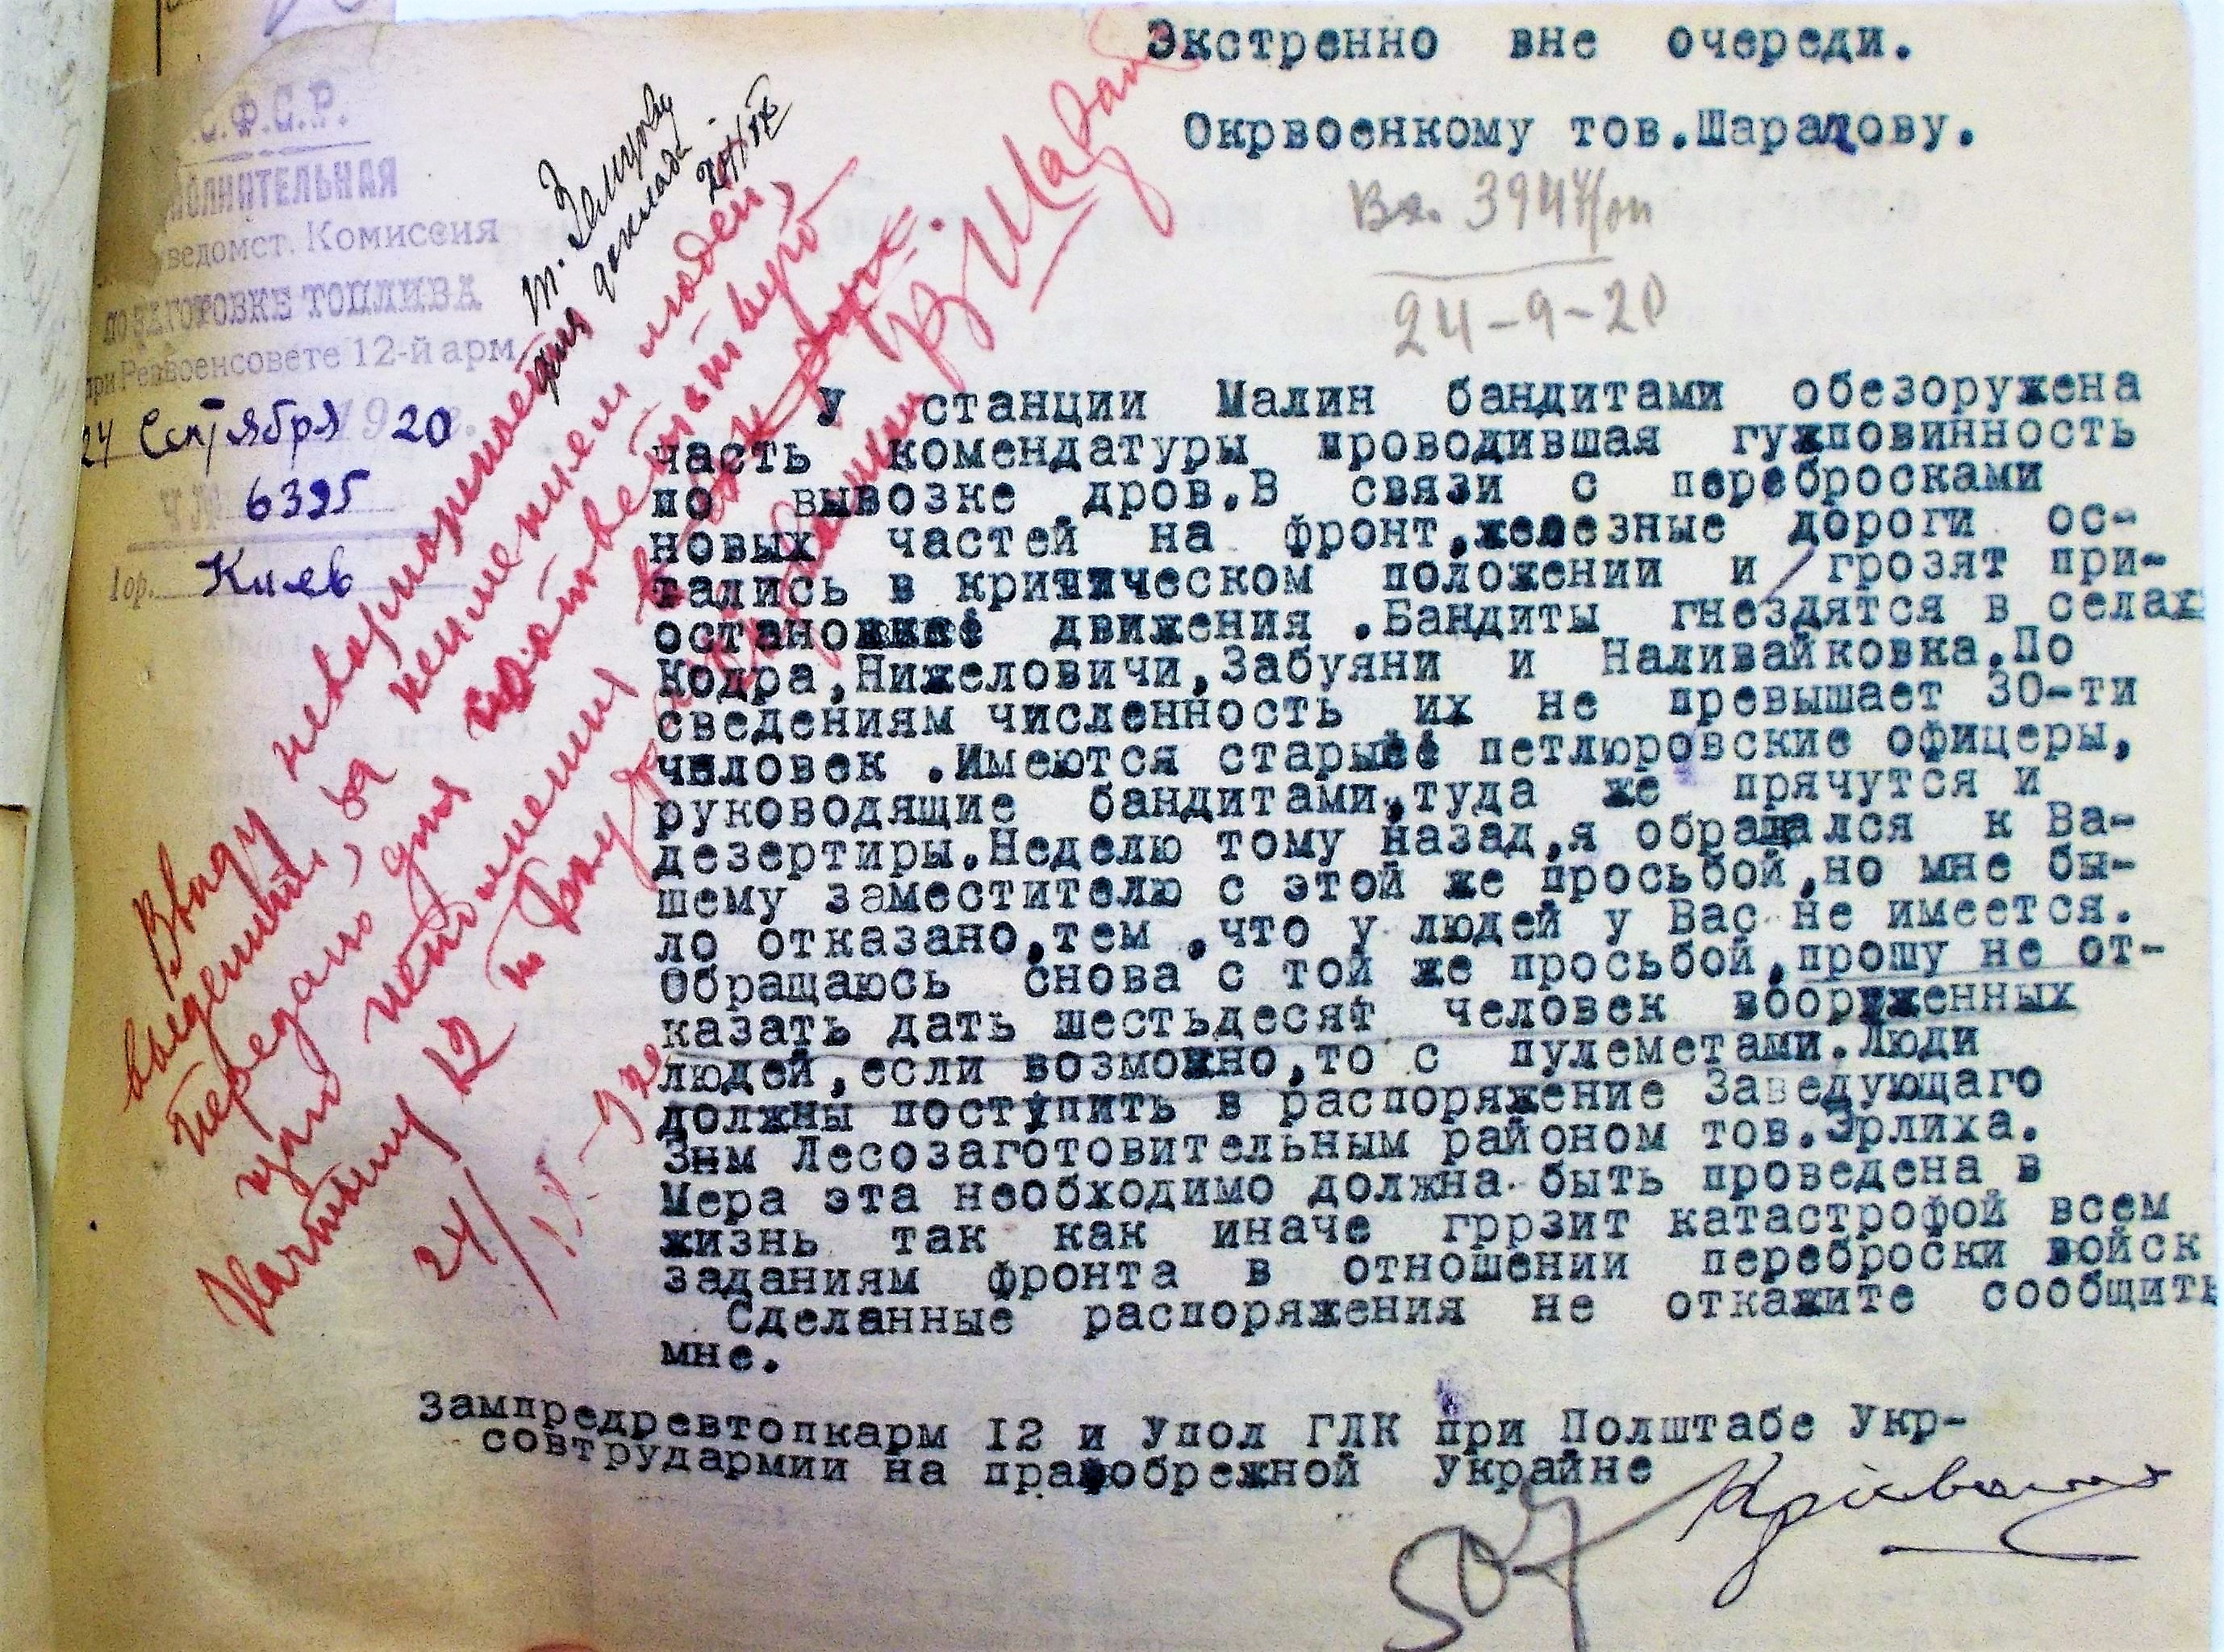 Экстренно вне очереди.
Окрвоенкому тов.Шарапову.
.С.Ф.С.Р.
ПОЛНИТЕЛЬНАЯ
ведомст. Комиссия
ПО ЗАГОТОВКЕ ТОПЛИВА
при Реввоенсовете 12-й арм
24 Сентября 1920
№ 6325
Гор. Киев
Вх. 3947/оп
24-9-20
У станции Малин бандитами обезоружена
часть комендатуры проводившая гужповинность
по вывозке дров.В связи с перебросками
новых частей на фронт,железные дороги ос-
тались в критическом положении и грозят при-
остановкой движения .Бандиты гнездятся в селах
Кодра,Нижеловичи,Забуяни и Наливайковка.По
сведениям численность их не превышает 30-ти
человек .Имеются старые петлюровские офицеры,
руководящие бандитами,туда же прячутся и
дезертиры.Неделю тому назад,я обращался к Ва-
шему заместителю с этой же просьбой,но мне бы-
ло отказано,тем ,что у людей у Вас не имеется.
Обращаюсь снова с той же просьбой,прошу не от-
казать дать шестьдесят человек вооруженных
людей,если возможно,то с пулеметами.Люди
должны поступить в распоряжение Заведующаго
3нм Лесозаготовительным районом тов.Эрлиха.
Мера эта необходимо должна быть проведена в
жизнь так как иначе гррзит катастрофой всем
заданиям фронта в отношении переброски войск
Сделанные распоряжения не откажите сообщить
мне.
Зампредревтопкарм I2 и Упол ГЛК при Полштабе Укр-
совтрудармии на правобрежной Украйне
507
Ввиду
за неимением людей,
передаю для
24/IX-